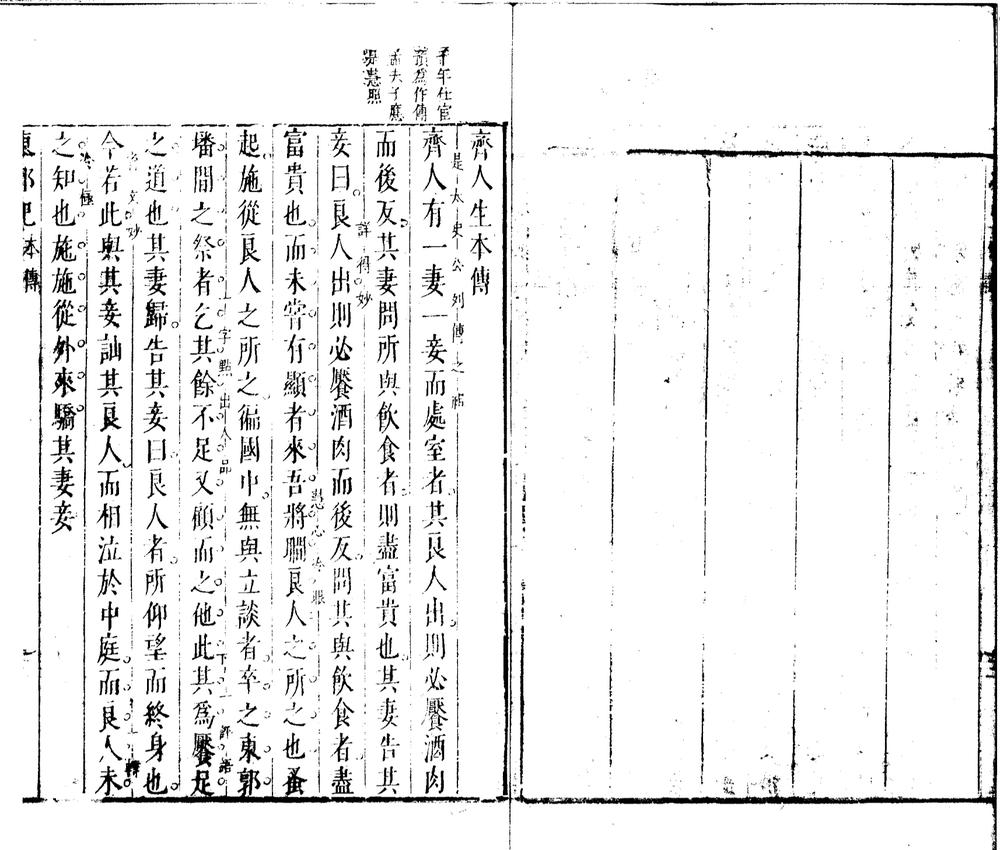 齊人生本傳
是太史公列傳之
齊人有一妻一妾而處室者其良人出則必饜酒肉
而後反其妻問所與飲食者則盡富貴也其妻告其
詳得妙
妾曰良人出則必饜酒肉而後反問其與飲食者盡
富貴也而未嘗有顯者來吾將瞷良人之所之也蚤
心冷眼
起施從良人之所之徧國中無與立談者卒之東郭
墦間之祭者乞其餘不足又顧而之他此其為饜足
字點出人品 下一評語
之道也其妻歸告其妾曰良人者所仰望而終身也
今若此與其妾訕其良人而相泣於中庭而良人未
文妙
之知也施施從外來驕其妻妾
冷極
東郭記 本傳
午仕宦
為作傳
孟夫子應